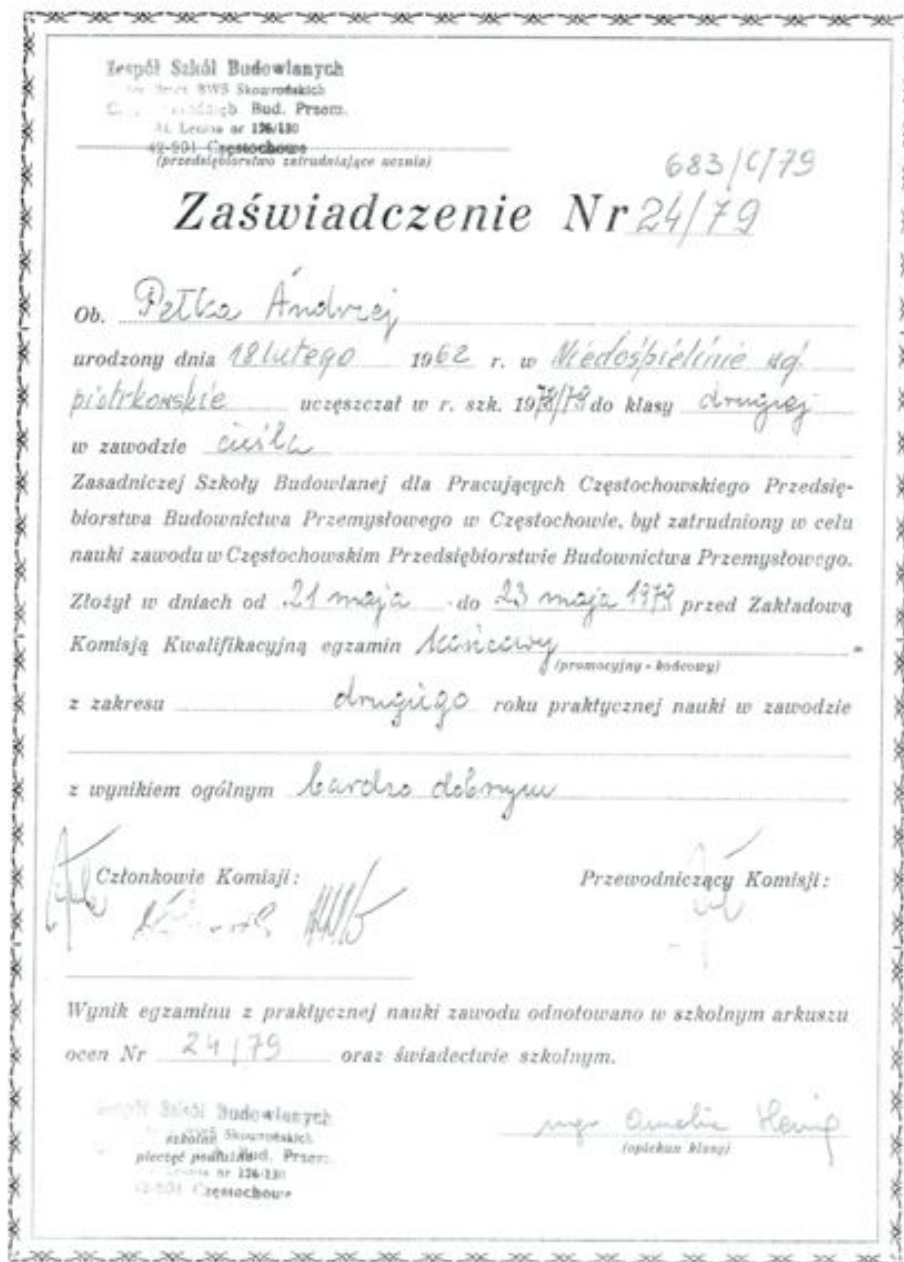 Zespół Szkół Budowlanych
BWS Skowrońskich
Bud. Przem.
Al. Lenina nr 126/130
42-201 Częstochowa
(przedsiębiorstwo zatrudniające ucznia)
683/C/79
Zaświadczenie Nr 24/79
Ob. Pełka Andrzej
urodzony dnia 18 lutego 1962 r. w Niedośpielinie woj.
piotrkowskie uczęszczał w r. szk. 1978/79 do klasy drugiej
w zawodzie cieśla
Zasadniczej Szkoły Budowlanej dla Pracujących Częstochowskiego Przedsię-
biorstwa Budownictwa Przemysłowego w Częstochowie, był zatrudniony w celu
nauki zawodu w Częstochowskim Przedsiębiorstwie Budownictwa Przemysłowego.
Złożył w dniach od 21 maja do 23 maja 1979 przed Zakładową
Komisją Kwalifikacyjną egzamin końcowy
(promocyjny - końcowy)
z zakresu drugiego roku praktycznej nauki w zawodzie
z wynikiem ogólnym bardzo dobrym
Członkowie Komisji: Przewodniczący Komisji:
Wynik egzaminu z praktycznej nauki zawodu odnotowano w szkolnym arkuszu
ocen Nr 24/79 oraz świadectwie szkolnym.
Zespół Szkół Budowlanych
Skowrońskich
szkolna
pieczęć podłużna Bud. Przem.
Lenina nr 126/130
42-201 Częstochowa
mgr Amelia
(opiekun klasy)